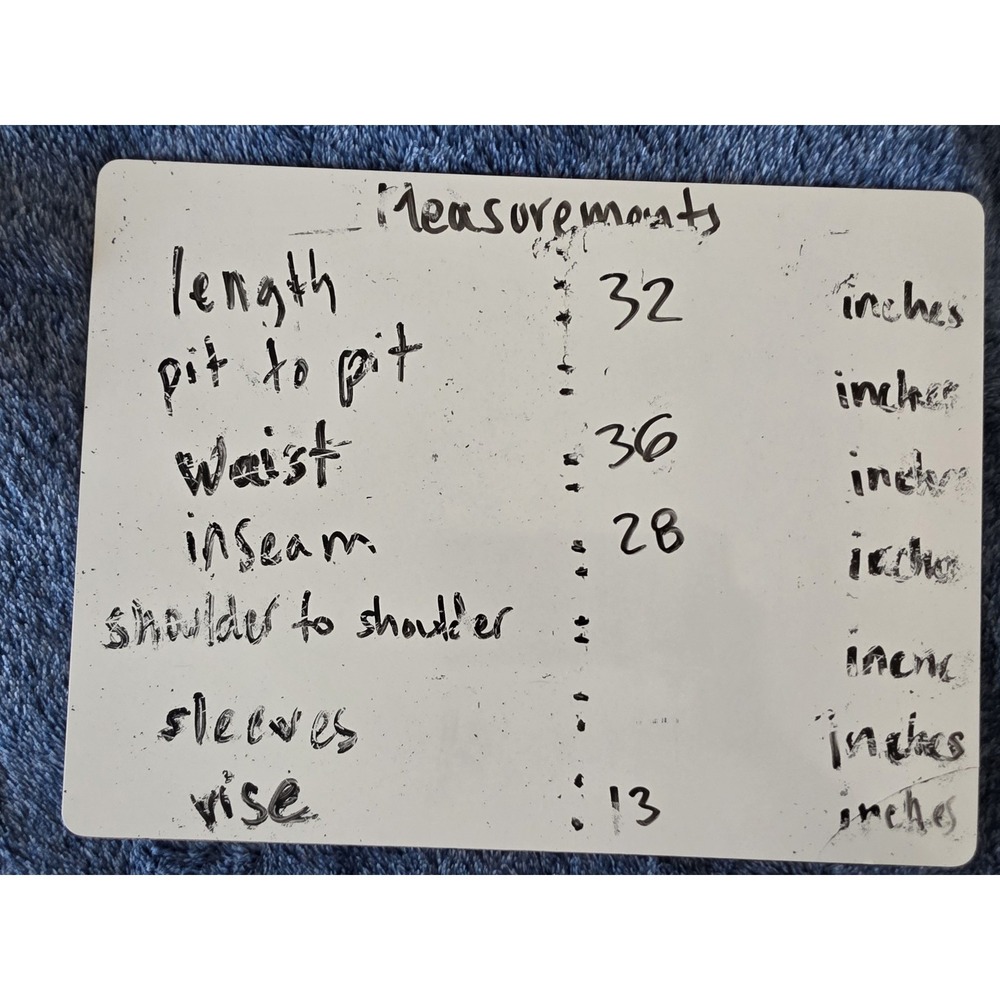 Measurements
length : 32 inches
pit to pit : inches
waist : 36 inches
inseam : 28 inches
shoulder to shoulder : inche
sleeves : inches
rise : 13 inches